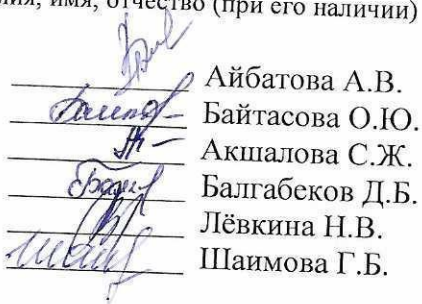 имя, отчество (при его наличии)
Айбатова А.В.
Байтасова О.Ю.
Акшалова С.Ж.
Балгабеков Д.Б.
Лёвкина Н.В.
Шаимова Г.Б.